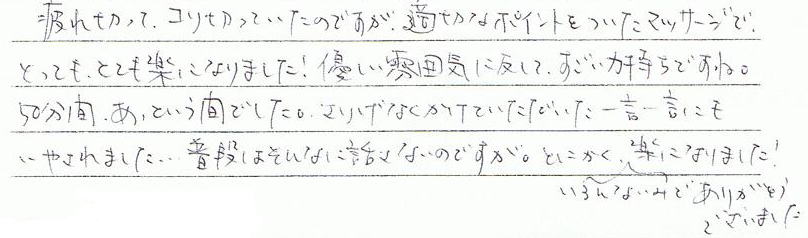 疲れ切って、コリ切っていたのですが、適切なポイントをついたマッサージで、
とっても、とても楽になりました！優しい雰囲気に反して、すごい力持ちですね。
50分間、あっという間でした。さりげなくかけていただいた一言一言にも
いやされました… 普段はそんなに話さないのですが。とにかく、楽になりました！
いろんないみでありがとう
ございました